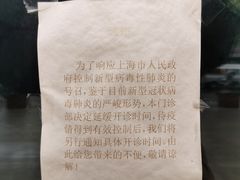 为了响应上海市人民政
府控制新型病毒性肺炎的
号召，鉴于目前新型冠状病
毒肺炎的严峻形势，本门诊
部决定延缓开诊时间，待疫
情得到有效控制后，我们将
另行通知具体开诊时间。由
此给您带来的不便，敬请谅
解！